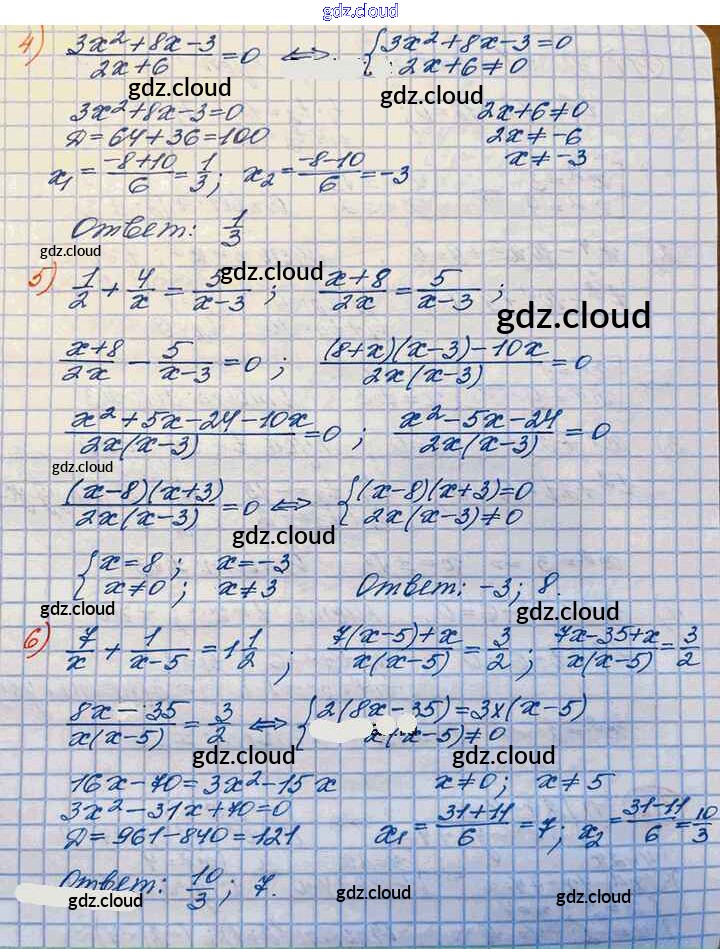 gdz.cloud
4) (3x²+8x-3)/(2x+6) = 0 ⟺ { 3x²+8x-3=0
2x+6≠0
gdz.cloud gdz.cloud
3x²+8x-3=0 2x+6≠0
Д=64+36=100 2x≠-6
x₁ = (-8+10)/6 = 1/3; x₂ = (-8-10)/6 = -3 x≠-3
Ответ: 1/3
gdz.cloud gdz.cloud
5) 1/2 + 4/x = 5/(x-3) ; (x+8)/2x = 5/(x-3) ;
gdz.cloud
(x+8)/2x - 5/(x-3) = 0 ; ((8+x)(x-3)-10x)/(2x(x-3)) = 0
(x²+5x-24-10x)/(2x(x-3)) = 0 ; (x²-5x-24)/(2x(x-3)) = 0
gdz.cloud
((x-8)(x+3))/(2x(x-3)) = 0 ⟺ { (x-8)(x+3)=0
2x(x-3)≠0
gdz.cloud
{ x=8 ; x=-3
x≠0 ; x≠3 Ответ: -3; 8.
gdz.cloud gdz.cloud
6) 7/x + 1/(x-5) = 1 1/2 ; (7(x-5)+x)/(x(x-5)) = 3/2 ; (7x-35+x)/(x(x-5)) = 3/2
(8x-35)/(x(x-5)) = 3/2 ⟺ { 2(8x-35)=3x(x-5)
x(x-5)≠0
gdz.cloud gdz.cloud
16x-70=3x²-15x x≠0 ; x≠5
3x²-31x+70=0
Д=961-840=121 x₁ = (31+11)/6 = 7; x₂ = (31-11)/6 = 10/3
Ответ: 10/3 ; 7.
gdz.cloud gdz.cloud gdz.cloud